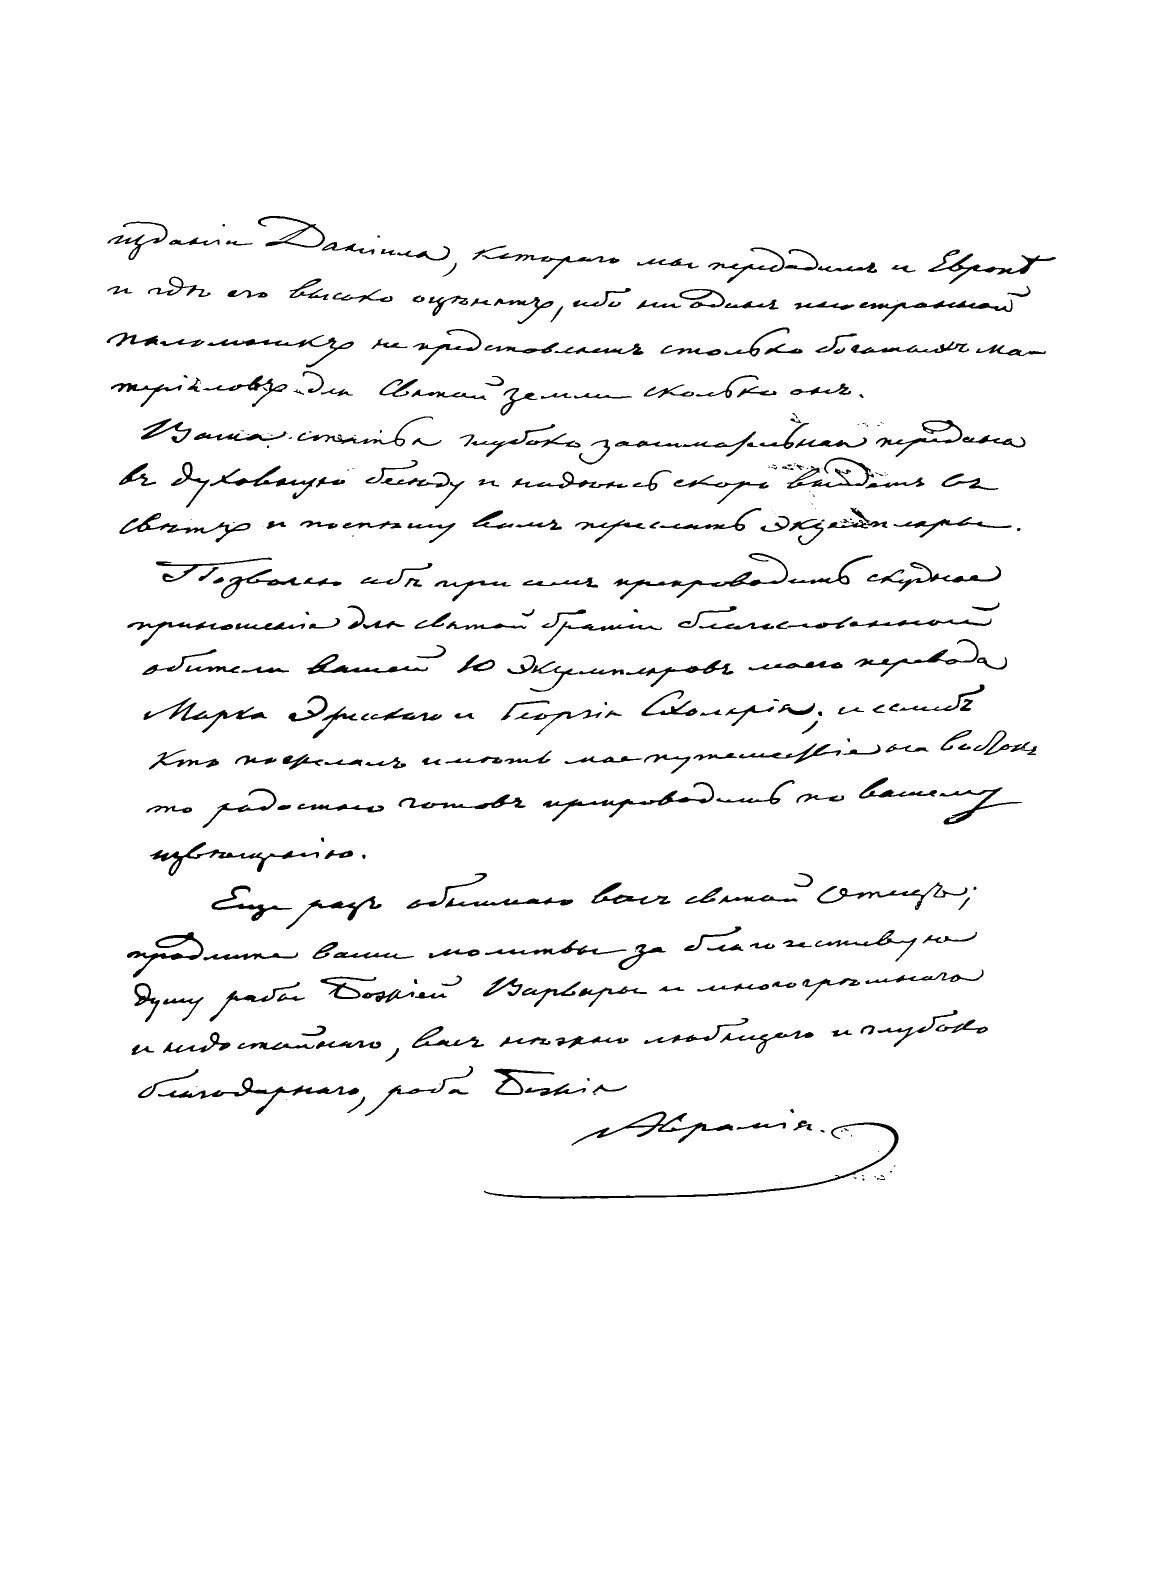 изданіи Даніила, котораго мы передадимъ и Европѣ
и гдѣ его высоко оцѣнятъ, ибо ни одинъ иностранной
паломникъ не представляетъ столько богатыхъ ма-
теріаловъ для Святой земли сколько онъ.
Ваша статья глубоко занимательная передана
въ духовную бесѣду и надѣюсь скоро выйдетъ въ
свѣтъ и поспѣшу вамъ переслать экземпляры.
Позволяю себѣ при семъ препроводить скудное
приношеніе для святой братіи благословенной
обители вашей 10 экземпляровъ моего перевода
Марка Эфесскаго и Георгія Схоларія; и еслибъ
кто пожелалъ имѣть мое путешествіе на востокъ
то радостно готовъ препроводить по вашему
извѣщенію.
Еще разъ обнимаю васъ святой Отецъ;
продлите ваши молитвы за благочестивую
душу рабы Божіей Варвары и многогрѣшнаго
и недостойнаго, васъ нѣжно любящаго и глубоко
благодарнаго, раба Божія
Аврамія.